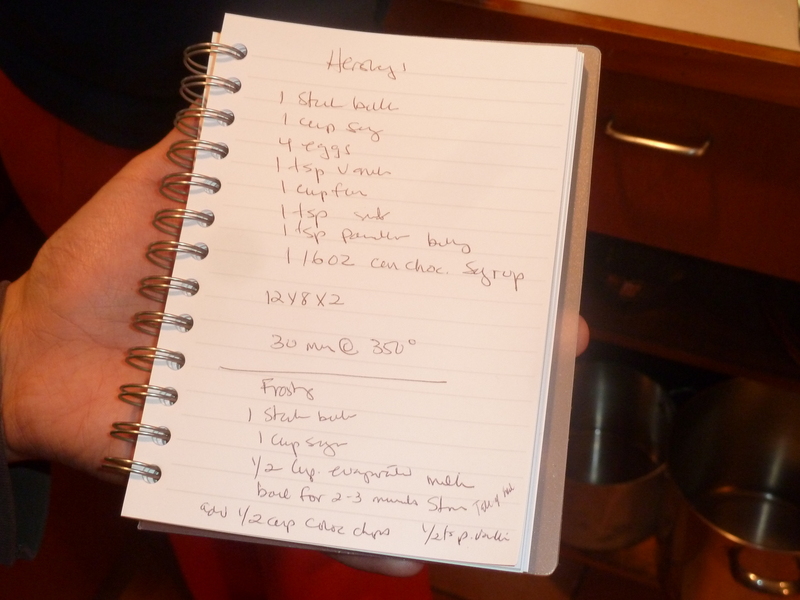 Hershy's
1 stick butter
1 cup sug
4 eggs
1 tsp vanilla
1 cup flour
1 tsp
1 tsp powder
1 16oz can choc. syrup
12 X 8 X 2
30 min @ 350°
Frosty
1 stick butter
1 cup sugar
1/2 cup. evaporated milk
boil for 2-3 minutes Stir Take off heat
add 1/2 cup choc chips 1/2 tsp. vanilla